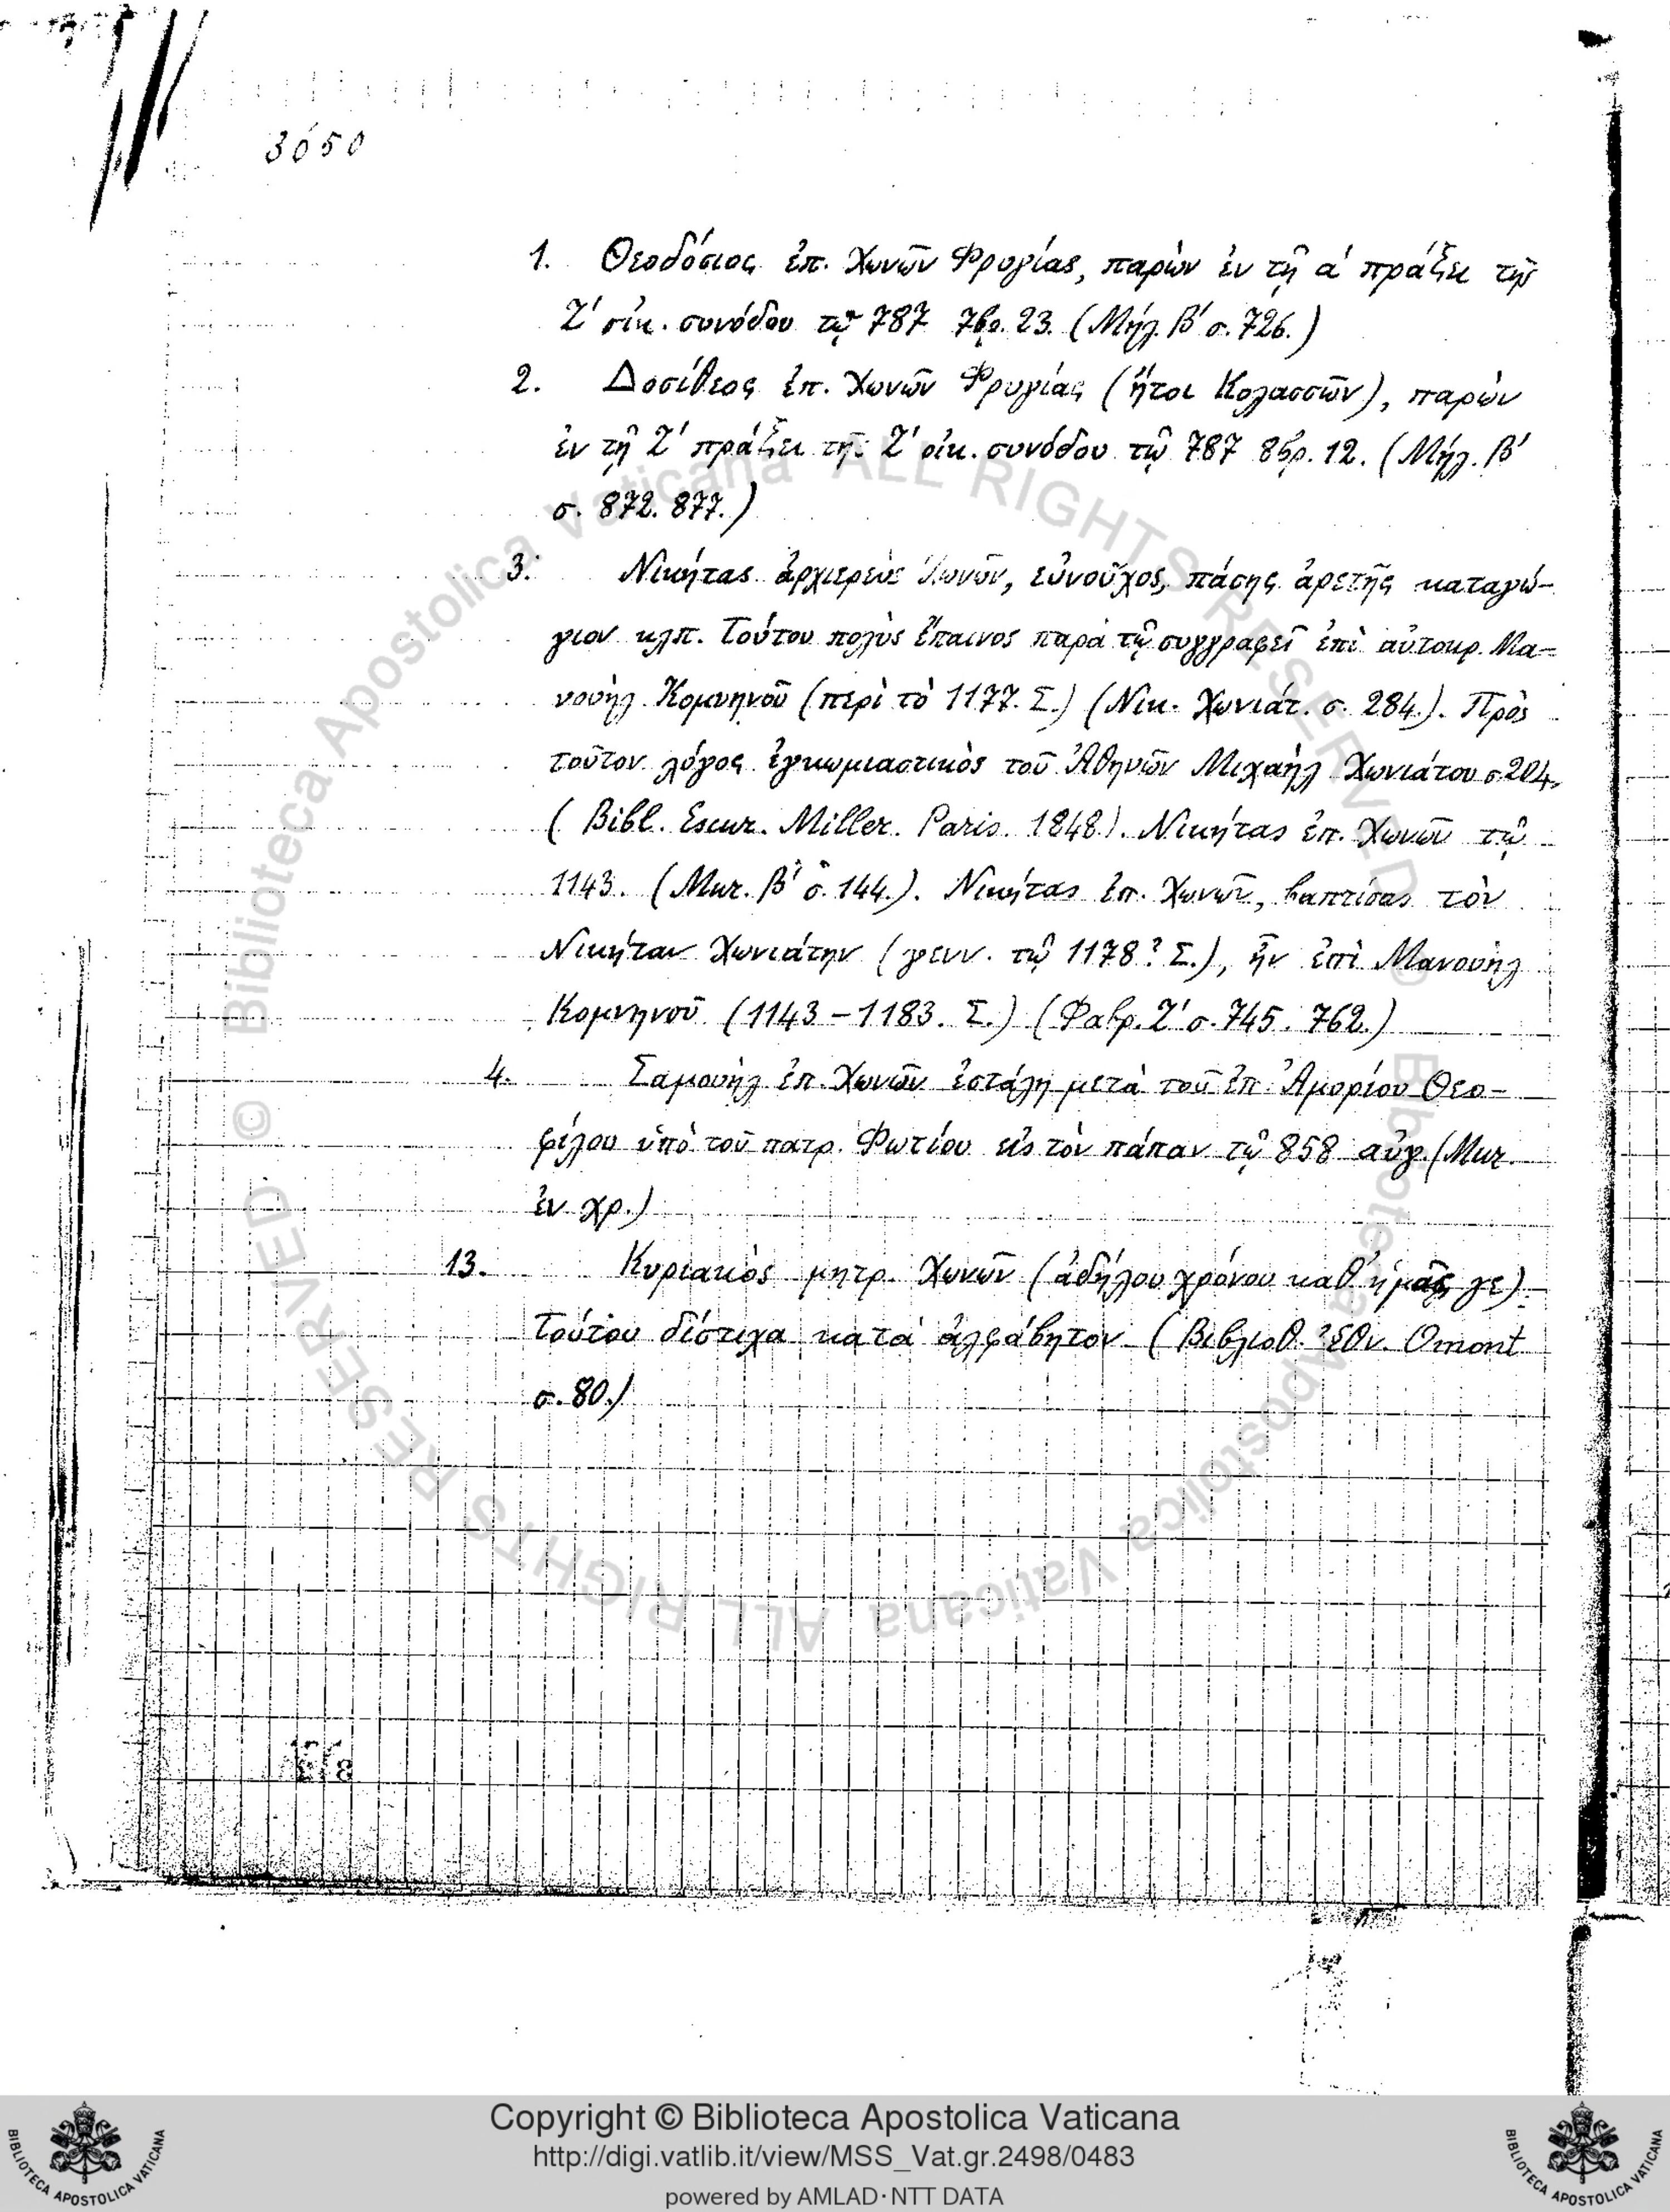 3650
1. Θεοδόσιος ἐπ. Χωνῶν Φρυγίας, παρὼν ἐν τῇ α΄ πράξει τῆς
Ζ΄ οἰκ. συνόδου τῷ 787 7βρ. 23. (Μήλ. Β΄ σ. 726.)
2. Δοσίθεος ἐπ. Χωνῶν Φρυγίας (ἤτοι Κολασσῶν), παρὼν
ἐν τῇ Ζ΄ πράξει τῆς Ζ΄ οἰκ. συνόδου τῷ 787 8βρ. 12. (Μήλ. Β΄
σ. 872. 877.)
3. Νικήτας ἀρχιερεὺς Χωνῶν, εὐνοῦχος, πάσης ἀρετῆς καταγώ-
γιον κλπ. Τούτου πολὺς ἔπαινος παρὰ τῷ συγγραφεῖ ἐπὶ αὐτοκρ. Μα-
νουὴλ Κομνηνοῦ (περὶ τὸ 1177. Σ.) (Νικ. Χωνιάτ. σ. 284.). Πρὸς
τοῦτον λόγος ἐγκωμιαστικὸς τοῦ Ἀθηνῶν Μιχαὴλ Χωνιάτου σ. 204.
(Bibl. Escur. Miller. Paris. 1848.). Νικήτας ἐπ. Χωνῶν τῷ
1143. (Mur. Β΄ σ. 144.). Νικήτας ἐπ. Χωνῶν, βαπτίσας τὸν
Νικήταν Χωνιάτην (γενν. τῷ 1178? Σ.), ἦν ἐπὶ Μανουὴλ
Κομνηνοῦ (1143-1183. Σ.) (Φαβρ. Ζ΄ σ. 745. 762.)
4. Σαμουὴλ ἐπ. Χωνῶν ἐστάλη μετὰ τοῦ ἐπ. Ἀμορίου Θεο-
φίλου ὑπὸ τοῦ πατρ. Φωτίου εἰς τὸν πάπαν τῷ 858 αὐγ. (Mur.
ἐν χρ.)
13. Κυριακὸς μητρ. Χωνῶν (ἀδήλου χρόνου καθ' ἡμᾶς γε).
Τούτου δίστιχα κατὰ ἀλφάβητον (Βιβλιοθ. Ἐθν. Omont
σ. 80.)
© Biblioteca Apostolica Vaticana ALL RIGHTS RESERVED
© Biblioteca Apostolica Vaticana ALL RIGHTS RESERVED
Copyright © Biblioteca Apostolica Vaticana
http://digi.vatlib.it/view/MSS_Vat.gr.2498/0483
powered by AMLAD·NTT DATA
BIBLIOTECA APOSTOLICA VATICANA
BIBLIOTECA APOSTOLICA VATICANA